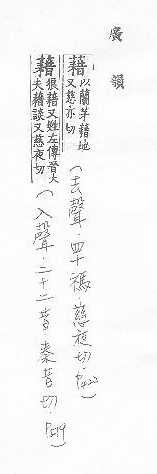 廣韻
藉 以蘭茅藉地又慈亦切 (去聲·四十禡·慈夜切·P422)
藉 狼藉又姓左傳晉大夫藉談又慈夜切 (入聲·二十二昔·秦昔切·P519)